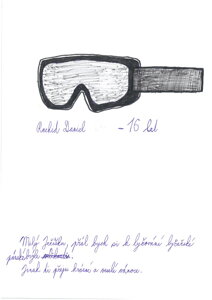 Rachid Daniel - 16 let
Milý Ježíšku, přál bych si k lyžování lyžařské
brýle.
Jinak ti přeju krásné a malé vánoce.